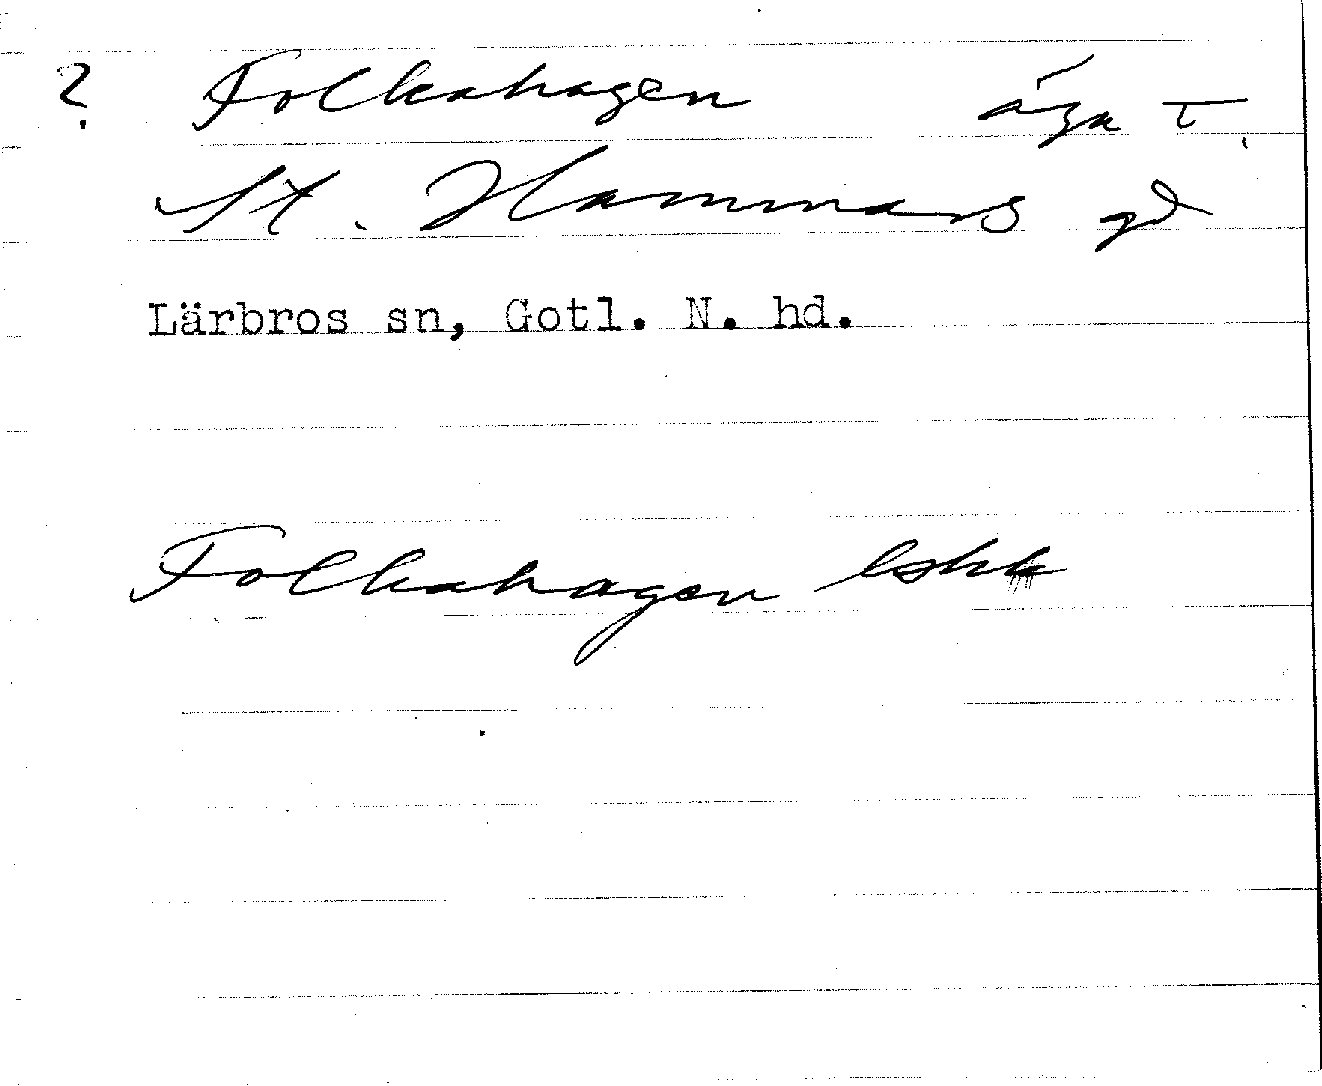 ? Folkahagen äga t.
St. Hammars gd
Lärbros sn, Gotl. N. hd.
Folkahagen